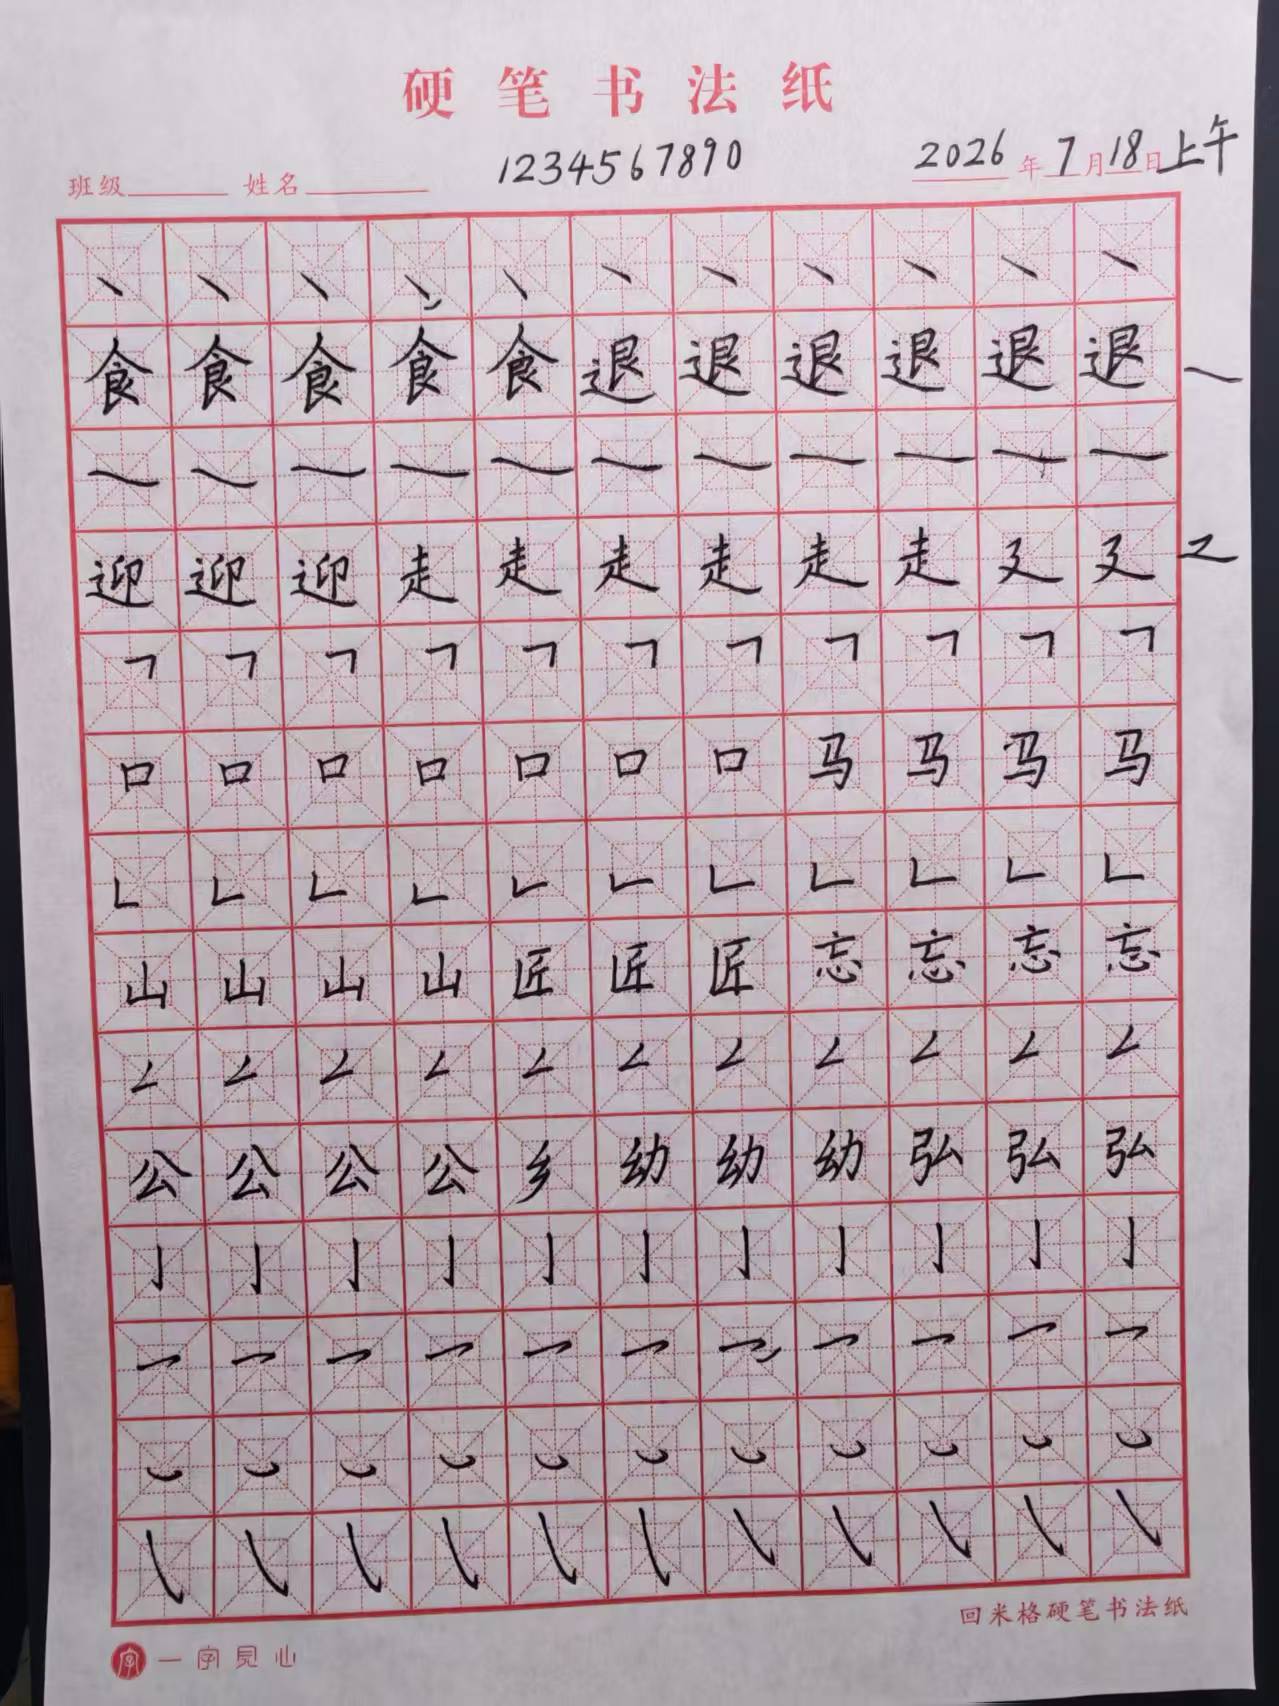 硬笔书法纸
班级 姓名 1234567890 2026年7月18日上午
丶丶丶丶丶丶丶丶丶丶丶
食食食食食退退退退退退
迎迎迎走走走走走走廴廴
𠃍𠃍𠃍𠃍𠃍𠃍𠃍𠃍𠃍𠃍𠃍
口口口口口口口马马马马
𠃊𠃊𠃊𠃊𠃊𠃊𠃊𠃊𠃊𠃊𠃊
山山山山匠匠匠忘忘忘忘
𠃋𠃋𠃋𠃋𠃋𠃋𠃋𠃋𠃋𠃋𠃋
公公公公乡幼幼幼弘弘弘
亅亅亅亅亅亅亅亅亅亅亅
回米格硬笔书法纸
字 一字见心